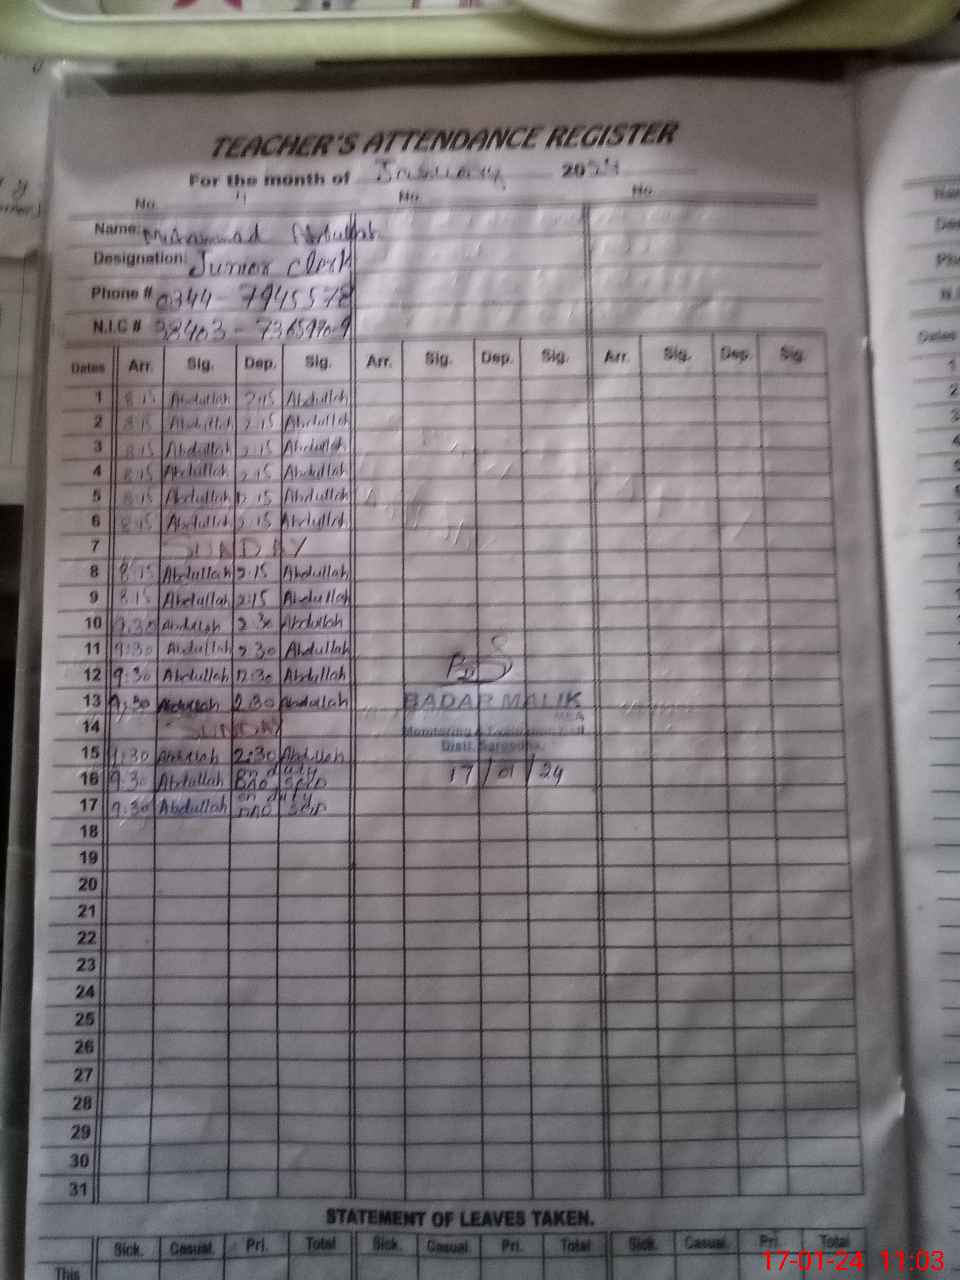 TEACHER'S ATTENDANCE REGISTER
For the month of January 2024
No. No. No.
Name: Muhammad Abdullah
Designation: Junior Clerk
Phone # 0344-7945578
N.I.C # 38403-7365970-9
Dates Arr. Sig. Dep. Sig. Arr. Sig. Dep. Sig. Arr. Sig. Dep. Sig.
1 8:15 Abdullah 2:15 Abdullah
2 8:15 Abdullah 2:15 Abdullah
3 8:15 Abdullah 2:15 Abdullah
4 8:15 Abdullah 2:15 Abdullah
5 8:15 Abdullah 2:15 Abdullah
6 8:15 Abdullah 2:15 Abdullah
7 SUNDAY
8 8:15 Abdullah 2:15 Abdullah
9 8:15 Abdullah 2:15 Abdullah
10 9:30 Abdullah 2:30 Abdullah
11 9:30 Abdullah 2:30 Abdullah
12 9:30 Abdullah 12:30 Abdullah
13 9:30 Abdullah 2:30 Abdullah
BADAR MALIK
MEA
14 SUNDAY
Monitoring & Evaluation Cell
Distt. Sargodha.
15 9:30 Abdullah 2:30 Abdullah
16 9:30 Abdullah on duty
17/01/24
17 9:30 Abdullah on duty
18
19
20
21
22
23
24
25
26
27
28
29
30
31
STATEMENT OF LEAVES TAKEN.
Sick. Casual. Pri. Total Sick. Casual. Pri. Total Sick. Casual. Pri. Total
This
17-01-24 11:03